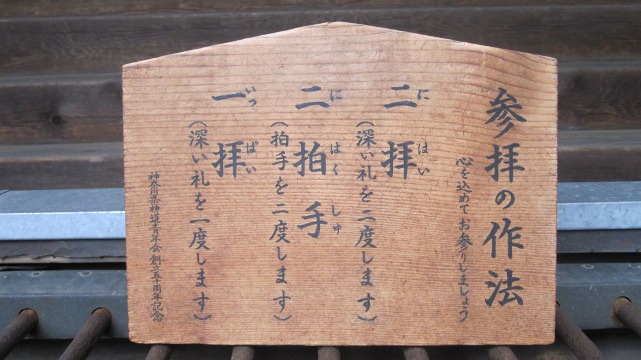 参拝の作法
心を込めてお参りしましょう
二拝
にはい
(深い礼を二度します)
二拍手
にはくしゅ
(拍手を二度します)
一拝
いっぱい
(深い礼を一度します)
神奈川県神道青年会 創立五十周年記念